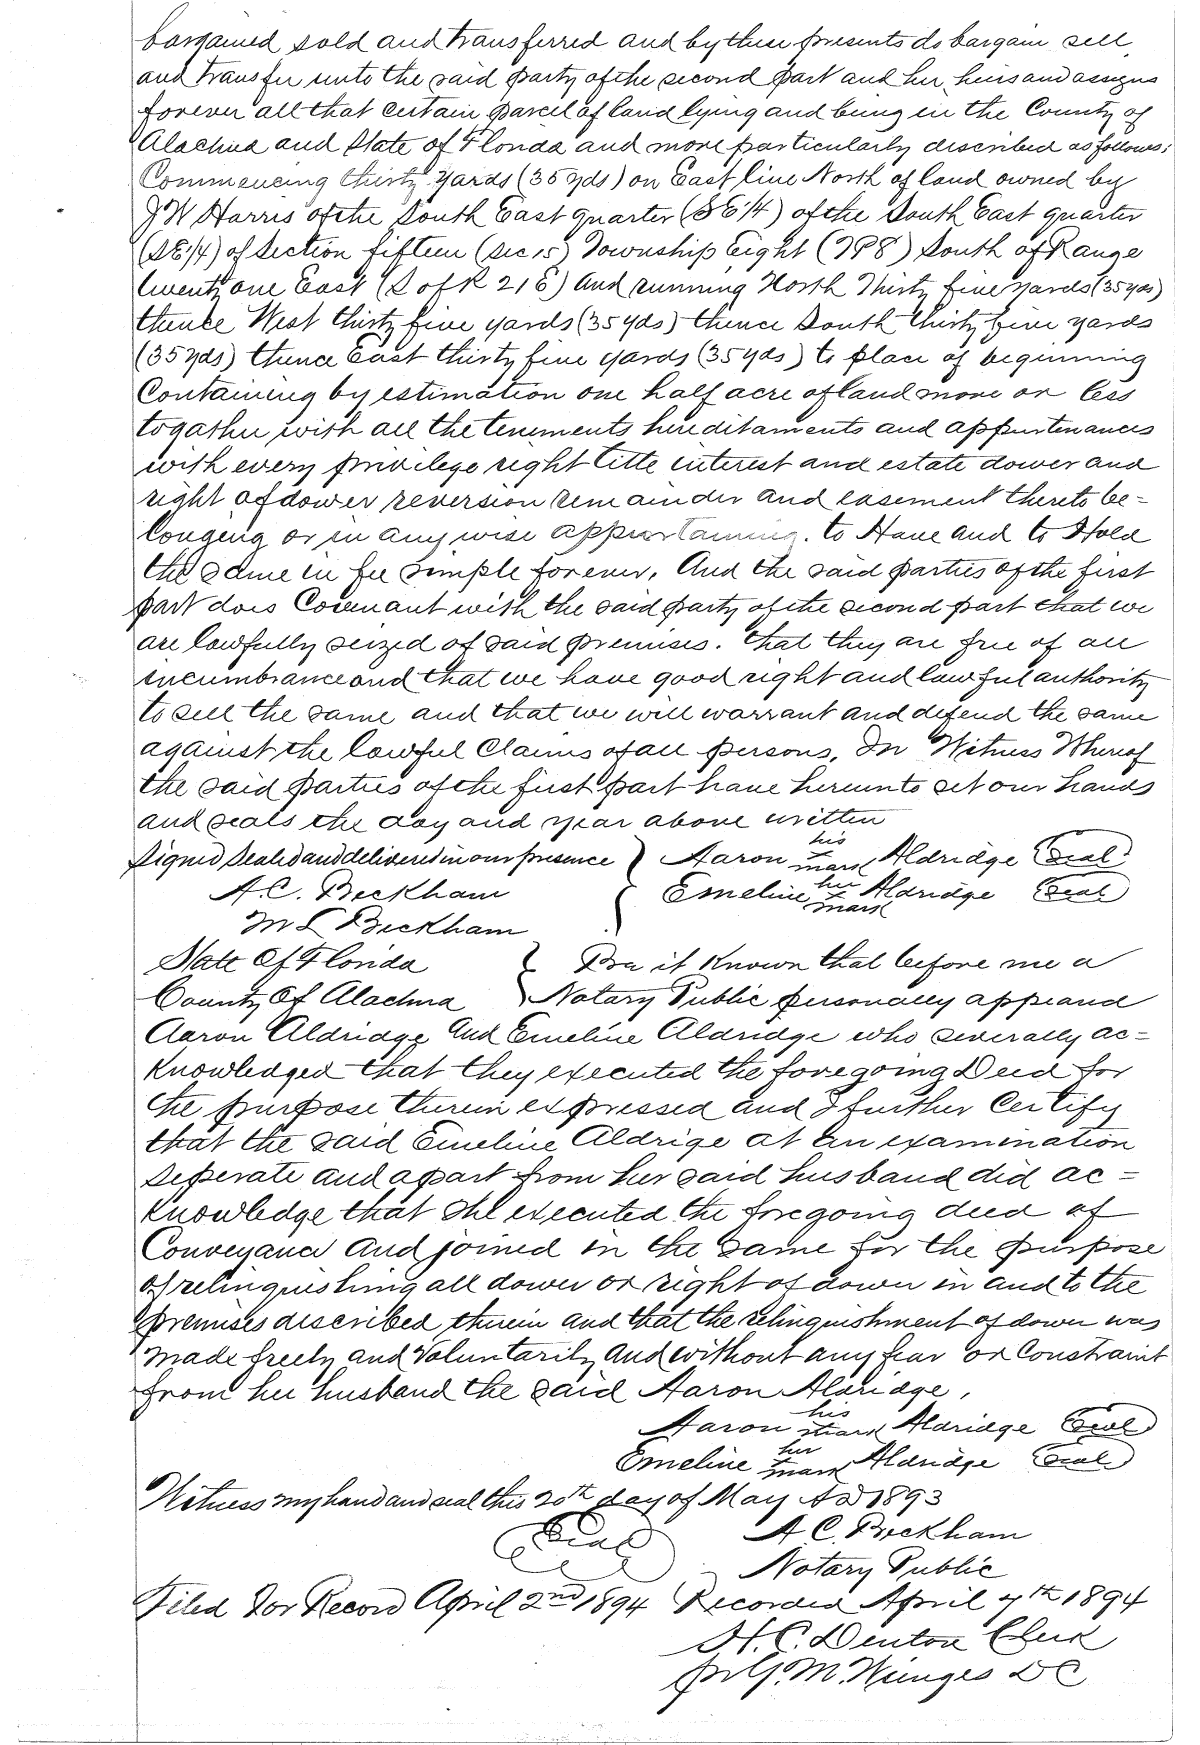 bargained sold and transferred and by these presents do bargain sell
and transfer unto the said party of the second part and her heirs and assigns
forever all that certain parcel of land lying and being in the County of
Alachua and State of Florida and more particularly described as follows:
Commencing thirty yards (35 yds) on East line North of land owned by
J W Harris of the South East quarter (SE 1/4) of the South East quarter
(SE 1/4) of Section fifteen (Sec 15) Township Eight (TP8) South of Range
twenty one East (S of R 21 E) and running North Thirty five yards (35 yds)
thence West thirty five yards (35 yds) thence South thirty five yards
(35 yds) thence East thirty five yards (35 yds) to place of beginning
Containing by estimation one half acre of land more or less
togather with all the tenements hereditaments and appurtenances
with every privilege right title interest and estate dower and
right of dower reversion remainder and easement thereto be=
longing or in any wise appertaining. to Have and to Hold
the same in fee simple forever. And the said parties of the first
part does Covenant with the said party of the second part that we
are lawfully seized of said premises. that they are free of all
incumbrance and that we have good right and lawful authority
to sell the same and that we will warrant and defend the same
against the lawful Claims of all persons. In Witness Whereof
the said parties of the first part have hereunto set our hands
and seals the day and year above written
Signed Sealed and delivered in our presence } Aaron his x mark Aldridge (Seal)
A. C. Beckham { Emeline her x mark Aldridge (Seal)
M L Beckham
State Of Florida } Be it Known that before me a
County Of Alachua } Notary Public personally appeared
Aaron Aldridge And Emeline Aldridge who severally ac=
knowledged that they executed the foregoing Deed for
the purpose therein expressed and I further Certify
that the said Emeline Aldrige at an examination
seperate and apart from her said husband did ac=
knowledge that she executed the foregoing deed of
Conveyance and joined in the same for the purpose
of relinquishing all dower or right of dower in and to the
premises described therein and that the relinquishment of dower was
made freely and Voluntarily and without any fear or Constraint
from her husband the said Aaron Aldridge.
Aaron his x mark Aldridge (Seal)
Emeline her x mark Aldridge (Seal)
Witness my hand and seal this 20th day of May AD 1893
(Seal) A. C. Beckham
Notary Public
Filed For Record April 2nd 1894 Recorded April 7th 1894
H. C. Denton Clerk
M. DC